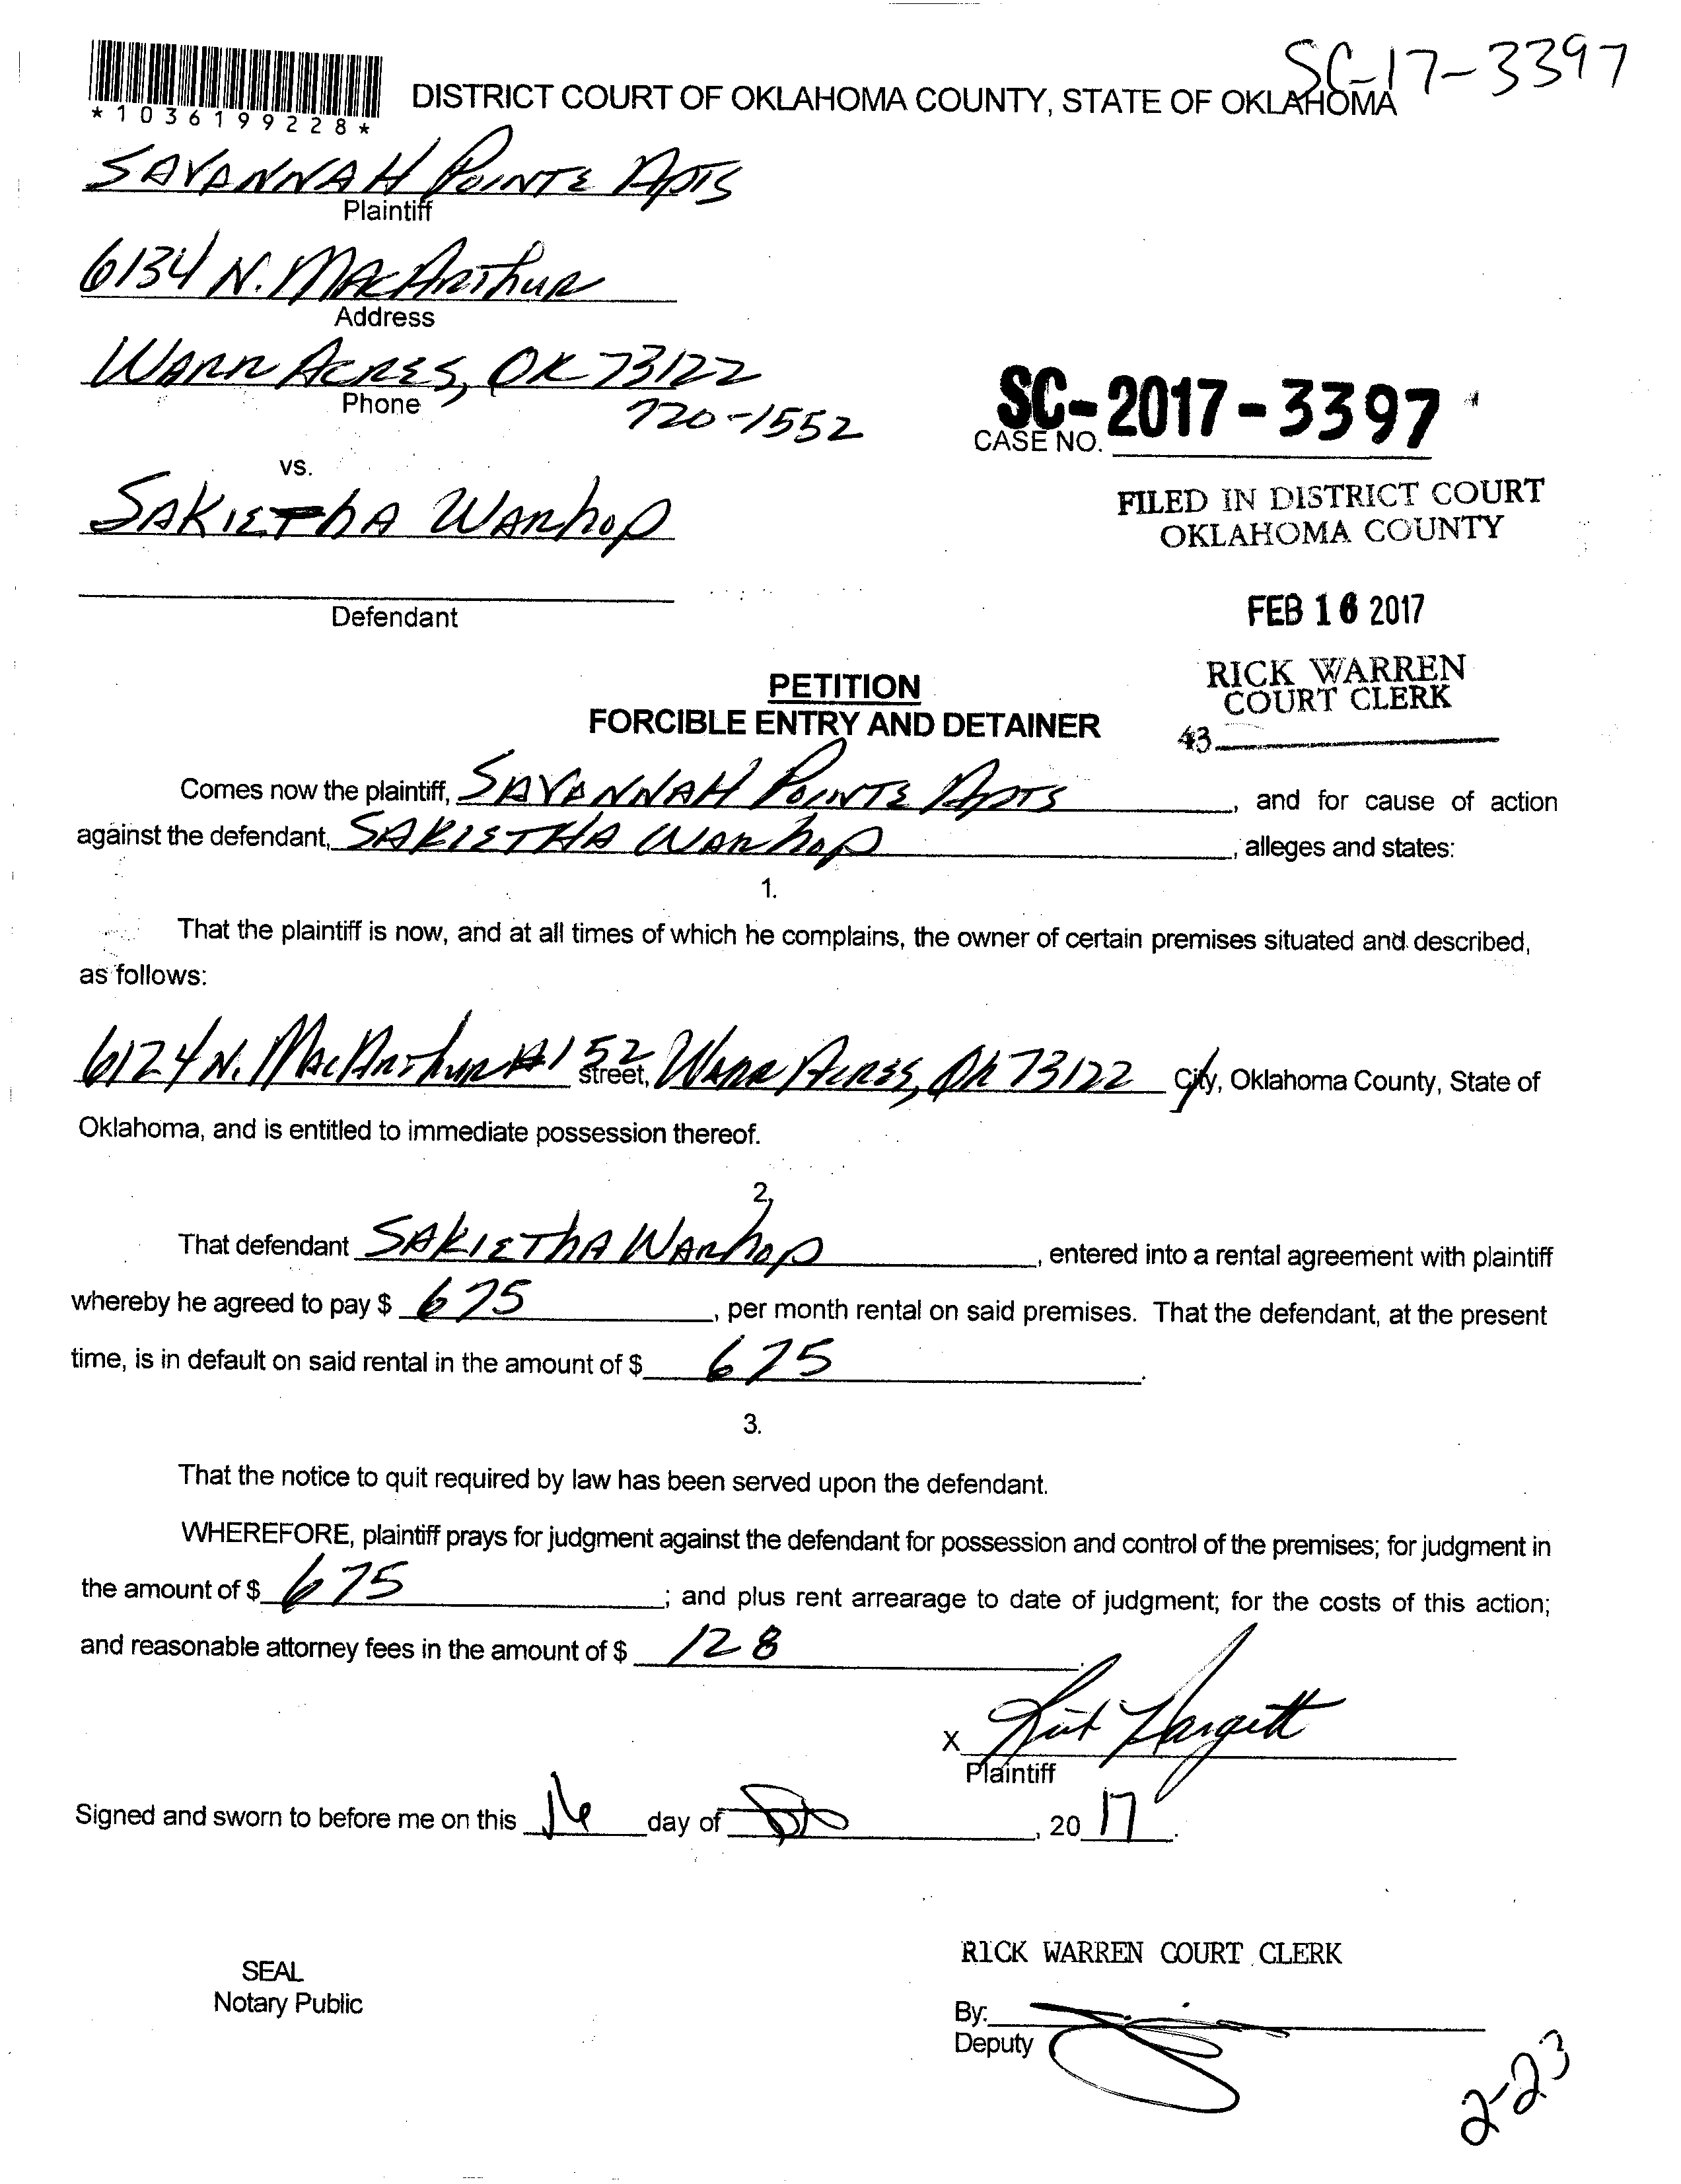 SC-17-3397
*1036199228*
DISTRICT COURT OF OKLAHOMA COUNTY, STATE OF OKLAHOMA
SAVANNAH POINTE APTS
Plaintiff
6134 N. MACARTHUR
Address
WARR ACRES, OK 73122
Phone
720-1552
SC-2017-3397
CASE NO.
vs.
SAKIETHA WARHOP
Defendant
FILED IN DISTRICT COURT
OKLAHOMA COUNTY
FEB 16 2017
RICK WARREN
COURT CLERK
43
PETITION
FORCIBLE ENTRY AND DETAINER
Comes now the plaintiff, SAVANNAH POINTE APTS, and for cause of action
against the defendant, SAKIETHA WARHOP, alleges and states:
1.
That the plaintiff is now, and at all times of which he complains, the owner of certain premises situated and described,
as follows:
6124 N. MacArthur #152 street, Warr Acres, OK 73122 City, Oklahoma County, State of
Oklahoma, and is entitled to immediate possession thereof.
2.
That defendant SAKIETHA WARHOP, entered into a rental agreement with plaintiff
whereby he agreed to pay $ 675, per month rental on said premises. That the defendant, at the present
time, is in default on said rental in the amount of $ 675.
3.
That the notice to quit required by law has been served upon the defendant.
WHEREFORE, plaintiff prays for judgment against the defendant for possession and control of the premises; for judgment in
the amount of $ 675; and plus rent arrearage to date of judgment; for the costs of this action;
and reasonable attorney fees in the amount of $ 128.
X Hargett
Plaintiff
Signed and sworn to before me on this 16 day of , 2017.
RICK WARREN COURT CLERK
SEAL
Notary Public
By:
Deputy
2-23